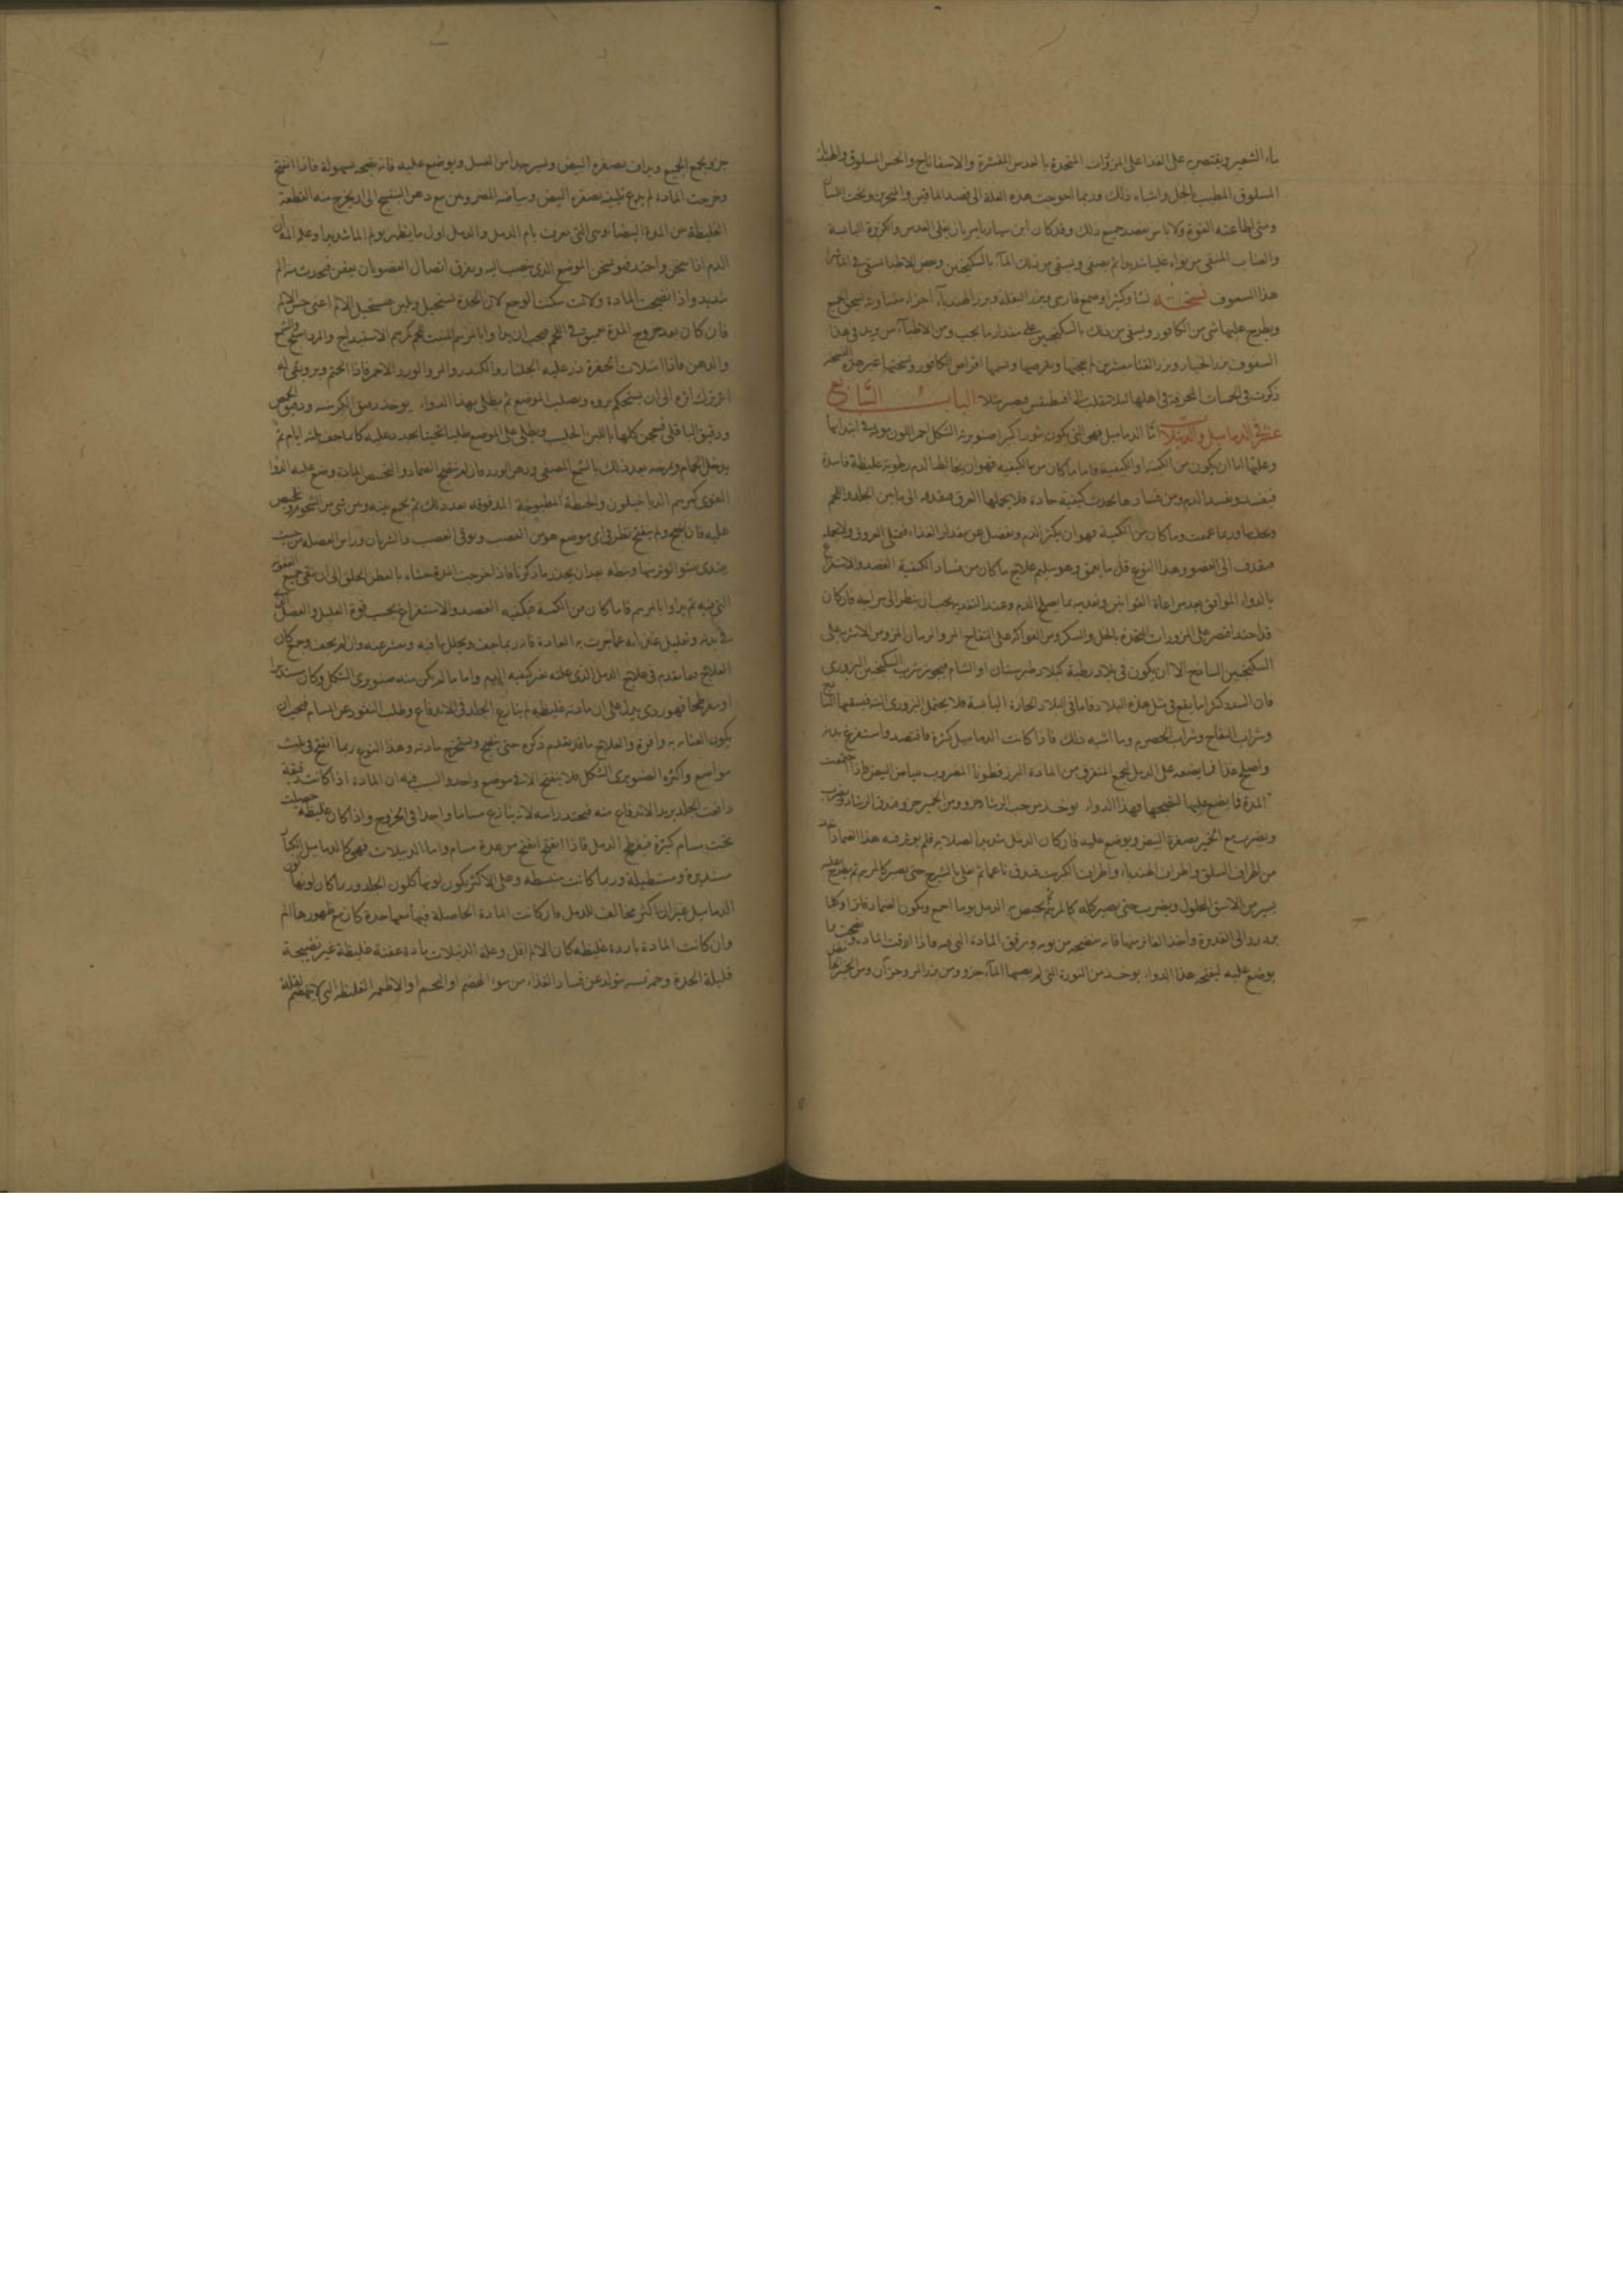 ماء الشعير ويقتصر على الغذا على المزورات المتخذة بالعدس المقشرة والاسفاناج والخس المسلوق والهندبا
المسلوق المطيب بالخل واشباه ذلك وربما احوجت هذه العلة الى فصد الماقين والمنخرين وتحت اللسان
ومتى اطاعته القوة ولاباس بفصد جميع ذلك وقد كان ابن سيار يامر بان يغلى العدس والكزبرة اليابسة
والعناب المنقى من نواه غليا شديدا ثم يصفى ويسقى من ذلك الماء بالسكنجبين وبعض الاطبا يسقى في
هذا السفوف نسخته نشا وكثيرا وصمغ فارسى وبزر البقلة وبزر الهندباء اجزاء متساوية يسحق الجميع
ويطرح عليها شى من الكافور ويسقى من ذلك بالسكنجبين على مقدار ما يجب ومن الاطباء من يزيد فى هذا
السفوف بزر الخيار وبزر القثا مقشرين ثم يعجنها ويقرصها ويسميها اقراص الكافور ونسختها غير هذه النسخة
ذكرت فى الحميات المحرقة فى اهلها الباب السابع
عشر فى الدماميل والدبيلات اما الدماميل فهى التى يكون بثورا كبارا صنوبرية الشكل احمر اللون مولمة فى ابتدائها
وعلتها اما ان يكون من الكمية او الكيفية فاما ما كان من الكيفية فهو ان يخالط الدم رطوبة غليظة فاسدة
فيفسد ويفسد الدم ومن فسادها يحدث كيفية حادة فلا يحملها العرق فيقذفه الى ما بين الجلد واللحم
وربما عمقت وما كان من الكمية فهو ان يكثر الدم ويفضل عن مقدار الغذاء فتمتلى العروق ولا تحمله
فيقذف الى العضو وهذا النوع قل ما يعمق وهو سليم علاج ما كان من فساد الكيفية الفصد والاستفراغ
بالدواء الموافق بعد مراعاة القوانين وتغذيه بما يصلح الدم وعند التغذية يجب ان ينظر الى مزاجه فان كان
اقتصر على المزورات المتخذة بالخل والسكر ومن الفواكه على التفاح المز والرمان المز ومن الاشربة على
السكنجبين الساذج الا ان يكون فى بلاد رطبة كبلاد طبرستان او الشام فيجوز شرب السكنجبين البزورى
فان السدد كثيرا ما يقع فى مثل هذه البلاد فاما فى البلاد الحارة اليابسة فلا يحتمل البزورى البتة فيسقيها
وشراب التفاح وشراب الحصرم وما اشبه ذلك فاذا كانت الدماميل كثيرة فافصد واستفرغ بدنه
واصلح غذا فما يضعه على الدمل لجمع المتفرق من المادة البزرقطونا المضروب ببياض البيض فاذا اجتمعت
المدة فما يضع عليها لينضجها فهذا الدواء يوخذ من حب الرشاد جزو ومن الخمير جزو فيدق الرشاد
ويضرب مع الخمير بصفرة البيض ويوضع عليه فان كان الدمل شديد الصلابة فلم يوثر فيه هذا الضماد
من اطراف السلق واطراف الهندباء واطراف الكرنب فيدق ناعما ثم يغلى بالشيرج حتى يصير كالمرهم ثم يطرح عليه
يسير من الاشق المحلول ويضرب حتى يصير كله كالمرهم الدمل يوما اجمع ويكون الضماد فاترا وكلما
برد رد الى القدرة واخذ الفاتر منها فانه ينضجه من يومه ويرقق المادة التى فيه فاذا رقت المادة
يوضع عليه ليفتحه هذا الدواء يوخذ من النورة التى لم يصبها الماء جزو ومن جزان ومن
جزو يجمع الجميع ويداف بصفرة البيض ويسير جدا من العسل ويوضع عليه فانه يفتحه بسهولة فاذا انفتح
وخرجت المادة بصفرة البيض وبياضه المضروبين مع دهن البنفسج الى ان يخرج منه القطعة
الغليظة من المدة البيضا وهى التى تعرف بام الدمل والدمل اول ما يظهر يولم الما شديدا وعلة الم
الدم اذا سخن واحتد فهو يسخن الموضع الذى ينصب اليه ويفرق اتصال العضو بان يعفن فيحدث منه الم
شديد واذا نضجت المادة ولانت سكت الوجع لان الحدة تستحيل ويلين فيستحيل الالم اعنى حس الالم
فان كان بعد خروج المدة عميق فى اللحم فيجب ان يداوا بالمرهم المنبت للحم كمرهم الاسفيداج والمرداسنج والشمع
والدهن فاذا امتلات الحفرة ذر عليه الجلنار والكندر والمر والورد الاحمر فاذا التحم وبرو وبقى له
اثر ترك اثره الى ان يستحكم بروه ويصلب الموضع ثم يطلى بهذا الدواء يوخذ دقيق الكرسنه ودقيق الحمص
ودقيق الباقلى فيعجن كلها باللبن الحليب ويطلى على الموضع طليا ثخينا يجدد عليه كلما جف ثلثه ايام ثم
يدخل الحمام ويمرخه بعد ذلك بالشمع المصفى ودهن الورد فان لم ينضج الضماد والتخبيص المادة وضع عليه الدوا
القوى كمرهم الدياخيلون والحنطة المطبوخة المدقوقة بعد ذلك ثم يجمع بينه وبين شى من الشحوم
عليه فان نضج ولم ينفتح تنظر فى اى موضع هو من العصب وتوقى العصب والشريان وراس العضلة من حيث
يبتدى بعد ان يحذر ما ذكرنا فاذا خرجت المدة حشاه بالقطن الخلق الى ان ينقى جميع
التى فيه ثم يداوا بالمرهم فاما كان من الكمية فيكفيه الفصد والاستفراغ بحسب قوة العليل والفصل
فى بدنه وتقليل غذائه عما جرت به العادة فانه ربما جف ويحلل ما فيه وان لم يجف وجمع كان
العلاج بما تقدم فى علاج الدمل الذى علته تغير كيفية الدم واما ما لم يكن منه صنوبرى الشكل وكان مستديرا
او مفرطحا فهو ردى يدل على ان مادته غليظة لم ينازع الجلد فى الاندفاع وطلب النفوذ عن المسام فيجب ان
يكون العناية به وافرة والعلاج ما قد تقدم ذكره حتى ينضج ويستخرج مادته وهذا النوع ربما انفتح فى ثلث
مواضع واكثره الصنوبرى الشكل فلا ينفتح الا فى موضع واحد والسبب فيه ان المادة اذا كانت رقيقة
دافعت الجلد يريد الاندفاع منه فيحتد راسه لانه ينازع مساما واحدا فى الخروج واذا كان غليظة حصلت
تحت مسام كثيرة فيفرطح الدمل فاذا انفتح انفتح من عدة مسام واما الدبيلات فهى كالدماميل الكبار
مستديرة ومستطيلة وربما كانت منبسطة وعلى الاكثر يكون لونها كلون الجلد وربما كان لونها لون
الدماميل غير ان اكثر مخالف للدمل فان كانت المادة الحاصلة فيها معها حدة كان مع ظهورها الم
وان كانت المادة باردة غليظة كان الالم اقل وعلة الدبيلات مادة عفنة غليظة غير نضيجة
قليلة الحدة تتولد عن فساد الغذاء من سو الهضم او التخم او الاطعمه الغليظه التى لا تنهضم